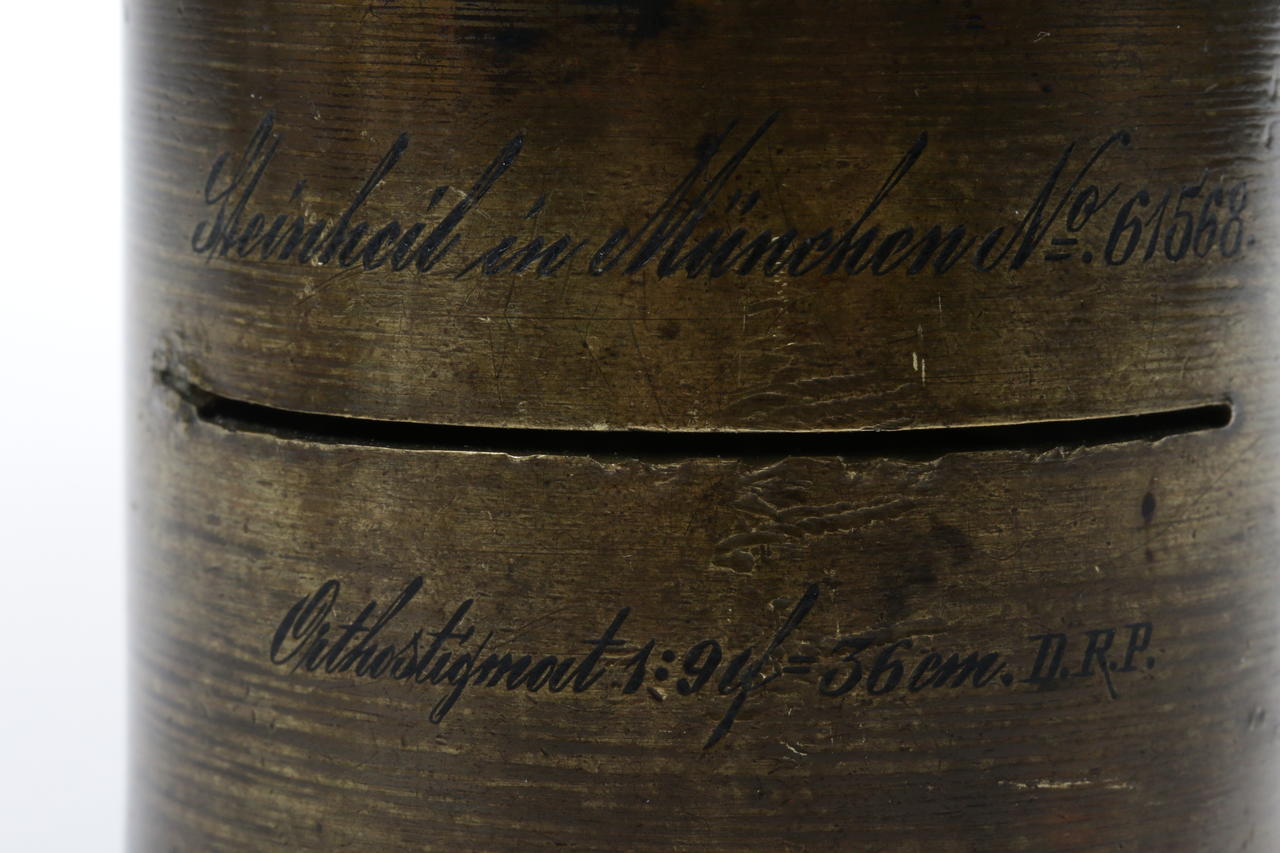 Steinheil in München No. 61568.
Orthostigmat 1:9 f=36cm. D.R.P.